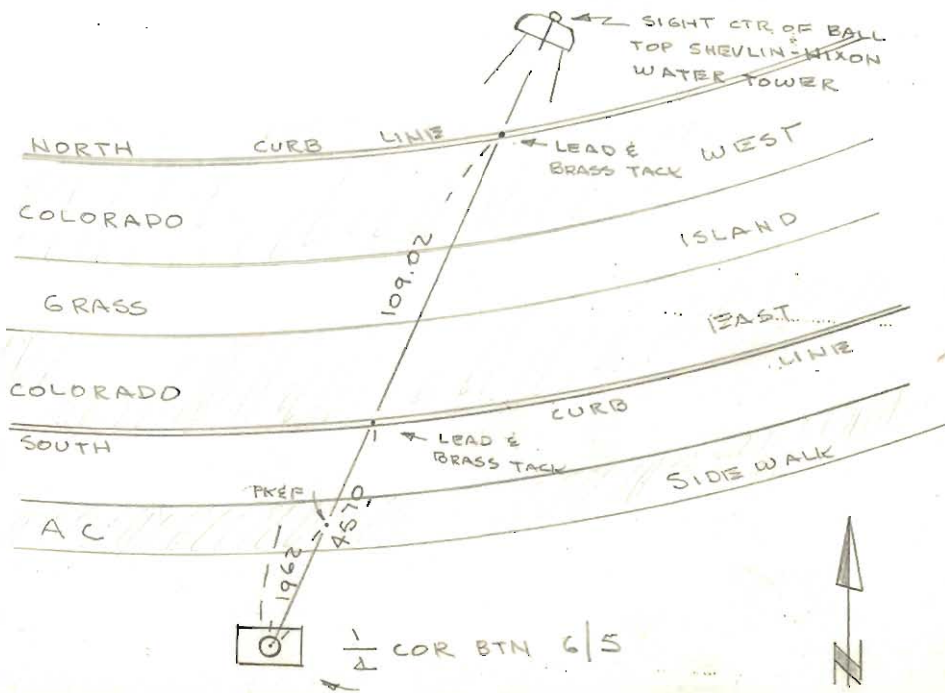 SIGHT CTR. OF BALL
TOP SHEVLIN-HIXON
WATER TOWER
NORTH CURB LINE
LEAD &
BRASS TACK
WEST
COLORADO
ISLAND
109.02
GRASS
EAST
LINE
COLORADO
CURB
SOUTH
LEAD &
BRASS TACK
SIDE WALK
PK&F
AC
4570
1962
1/4 COR BTN 6/5
N